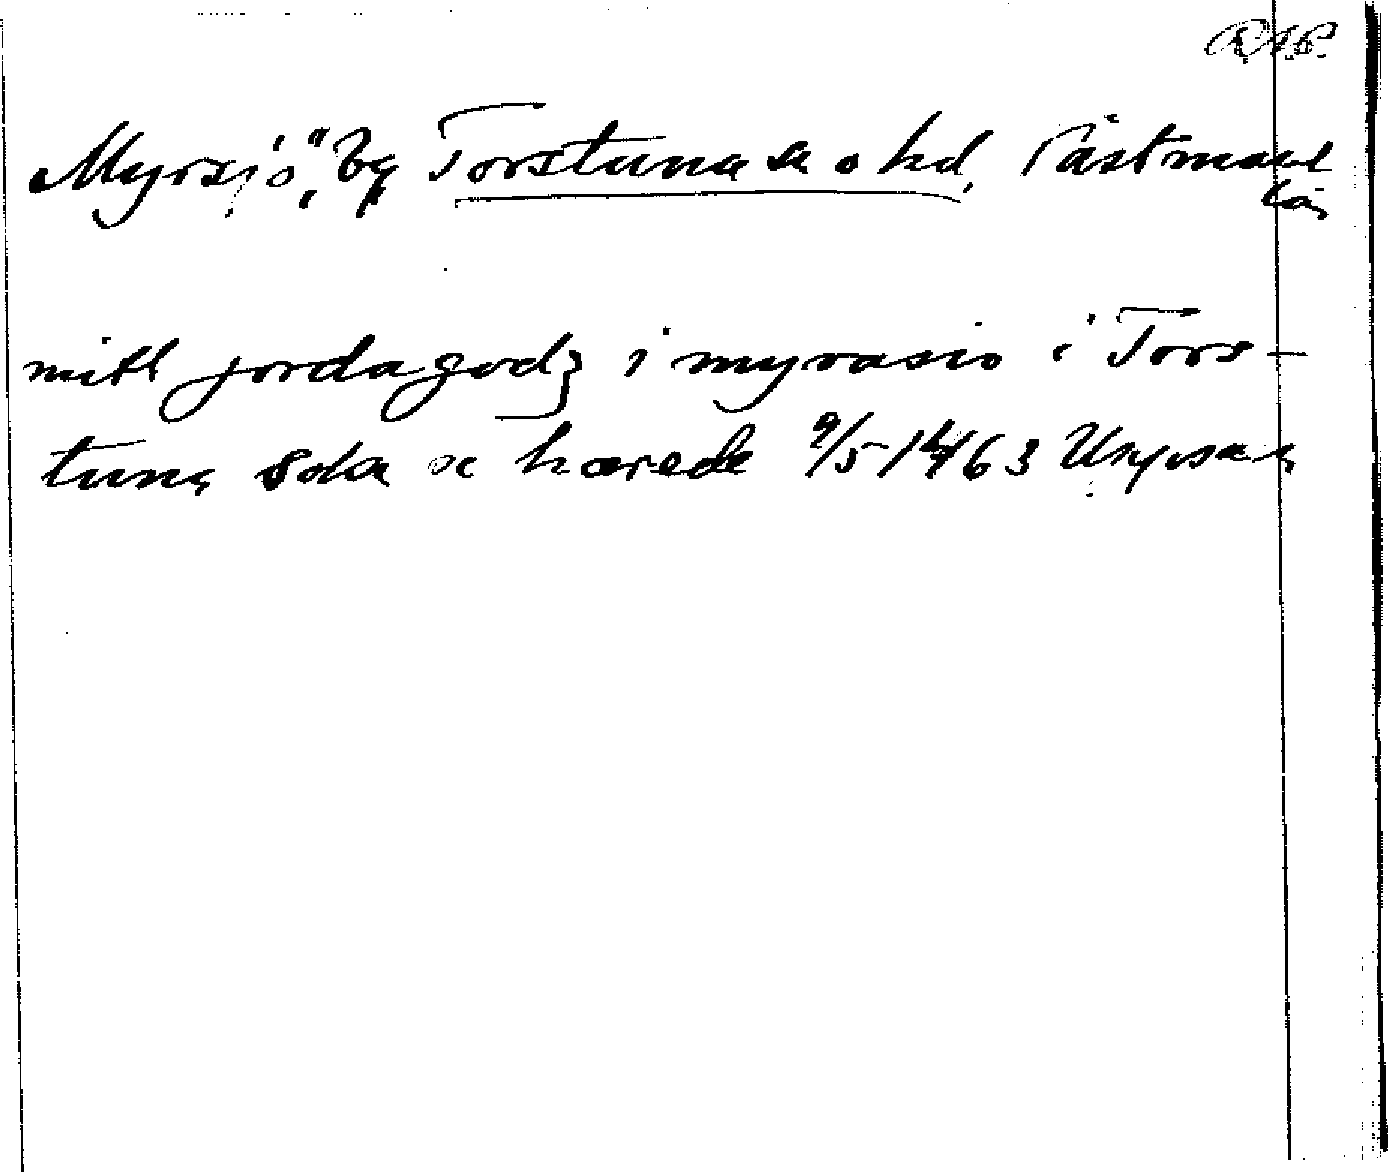 RAP.
Myrsjö, by Torstuna sn o hd, Västmanl
län
mitt jordagodz i myrasio i Tors-
tuna sokn oc hærede 9/5 1463 Uppsala